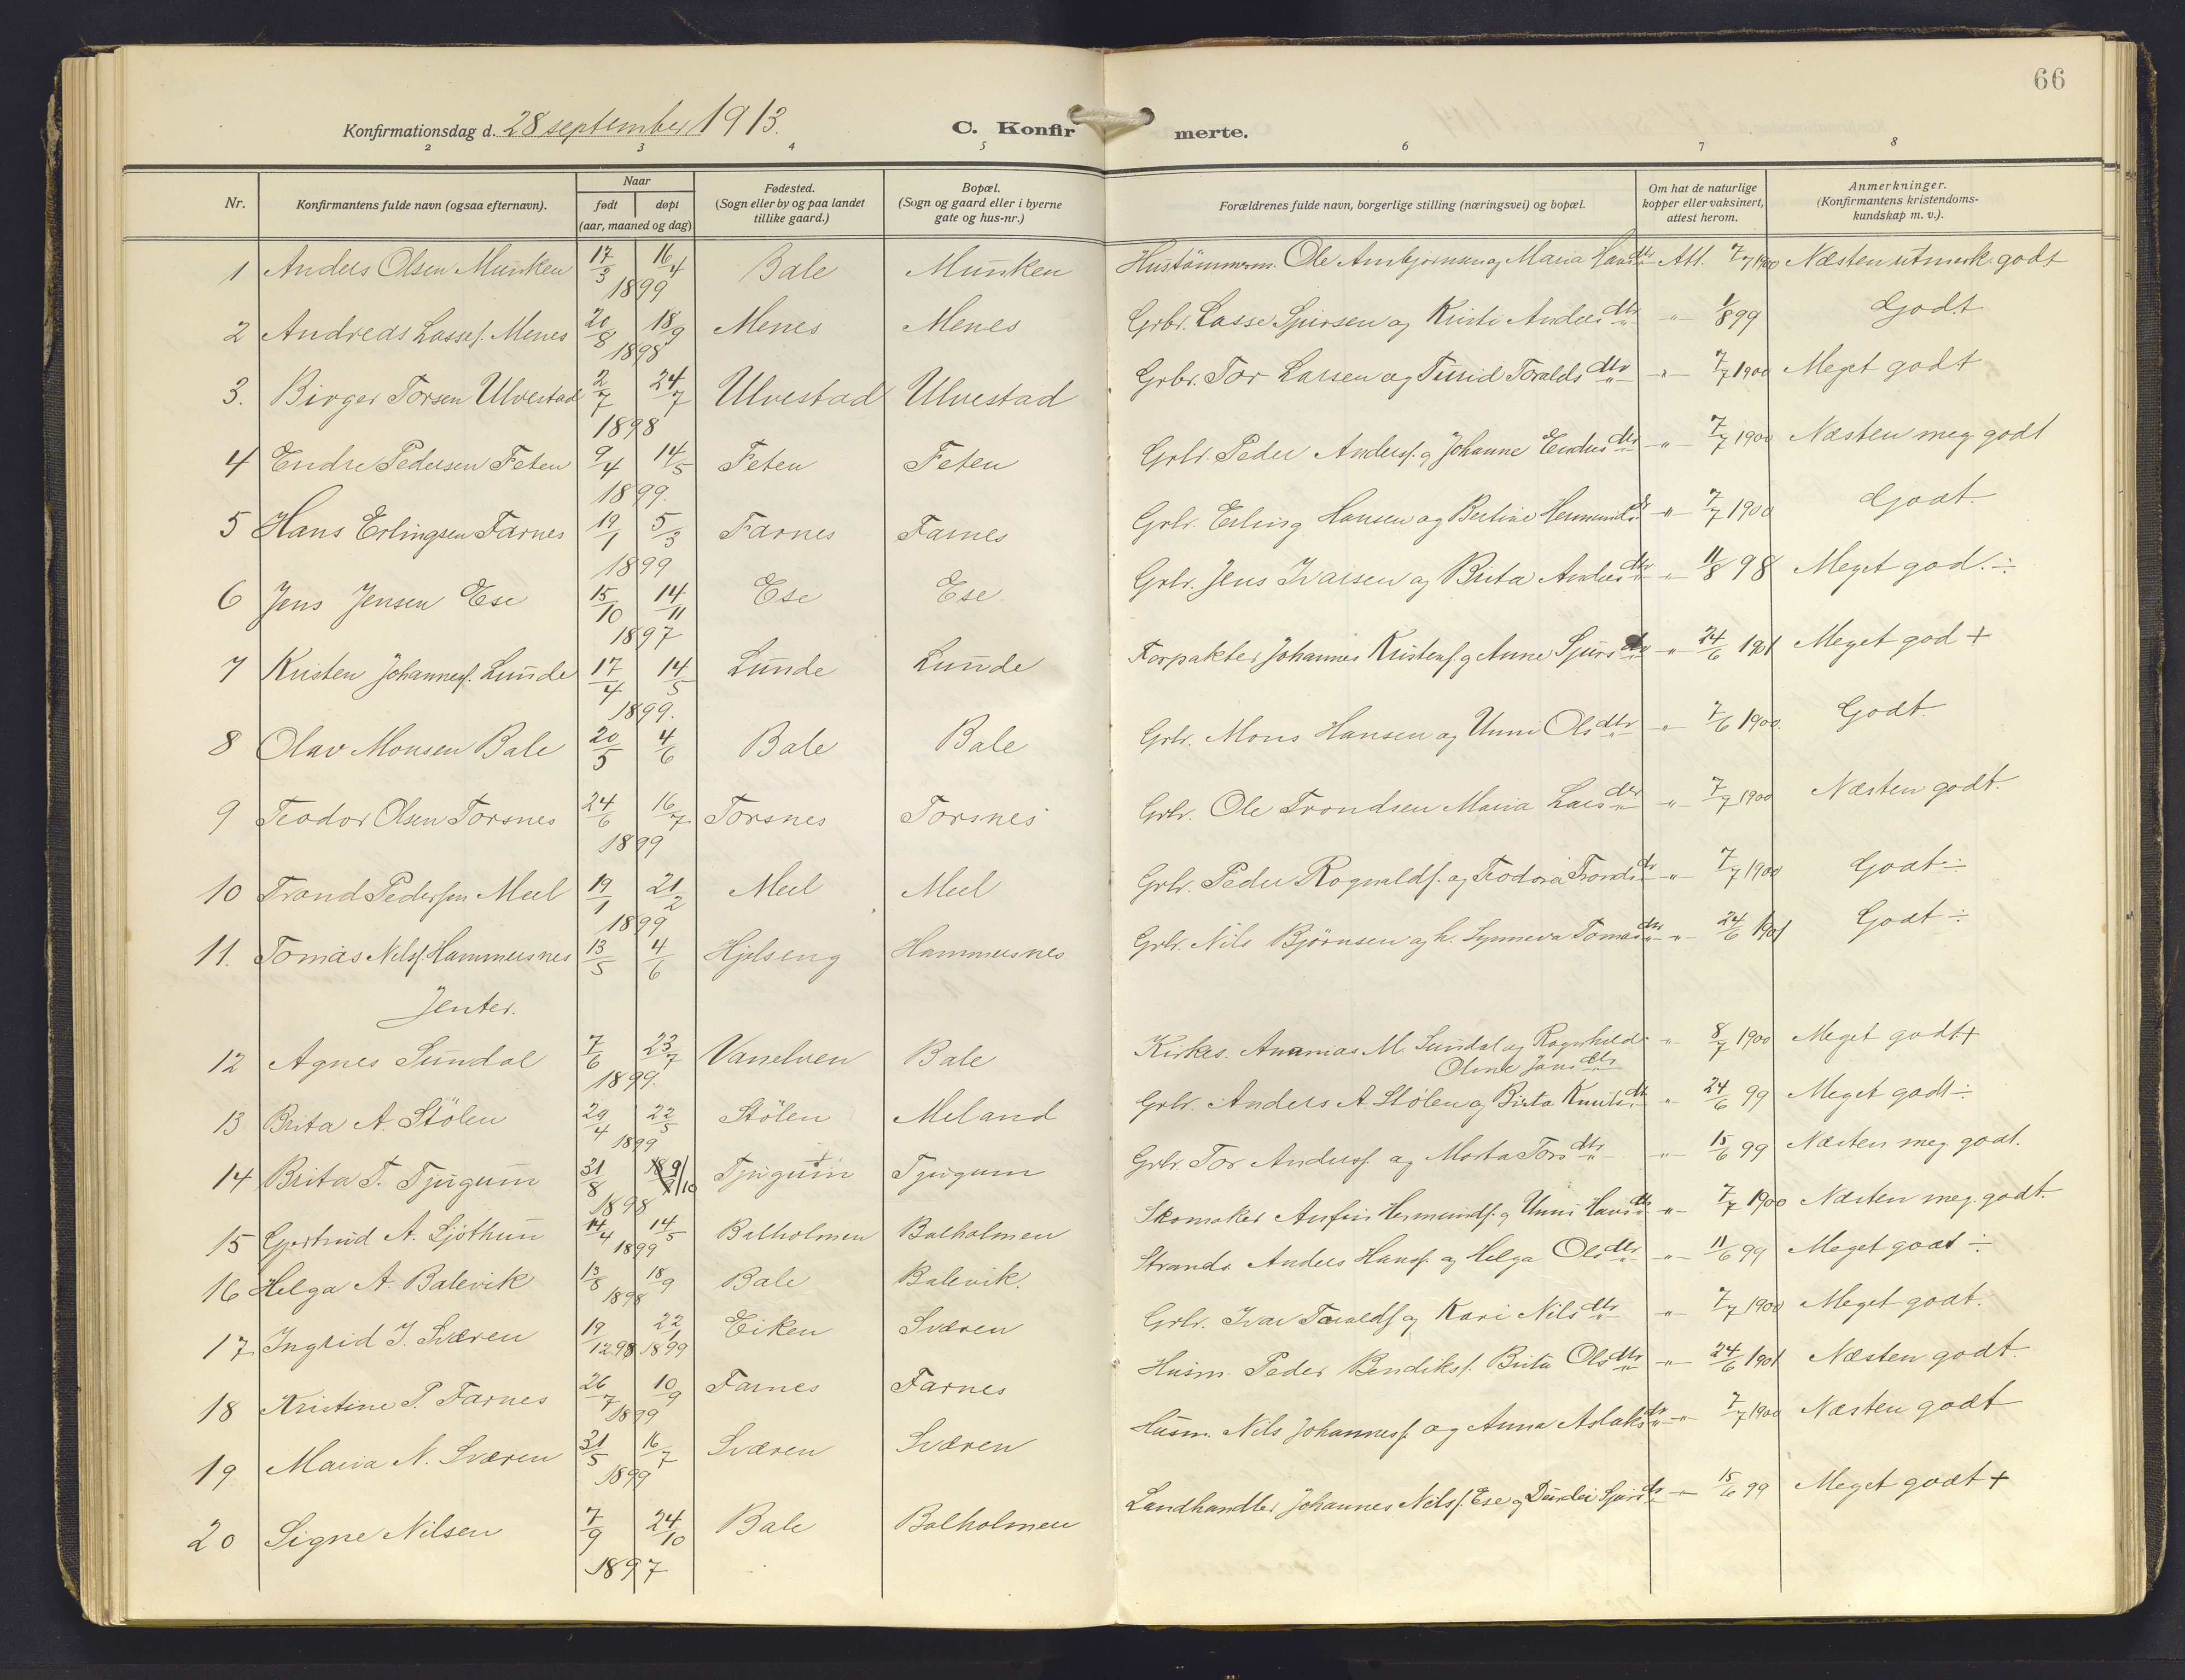 66
Konfirmationsdag d. 28 september 1913.
C. Konfirmerte.
2 3 4 5 6 7 8
Nr.
Konfirmantens fulde navn (ogsaa efternavn).
Naar
født døpt
(aar, maaned og dag)
Fødested.
(Sogn eller by og paa landet
tillike gaard.)
Bopæl.
(Sogn og gaard eller i byerne
gate og hus-nr.)
Forældrenes fulde navn, borgerlige stilling (næringsvei) og bopæl.
Om hat de naturlige
kopper eller vaksinert,
attest herom.
Anmerkninger.
(Konfirmantens kristendoms-
kundskap m. v.).
1 Anders Olsen Munken 17/3 16/4 Bale Munken Hustömmerm. Ole og Maria Hansdtr Att. 7/7 1900 Næsten utmerk. godt
1899
2 Andreas Lassef. Menes 20/8 18/9 Menes Menes Grbr. Lasse Sjursen og Kristi Andersdtr " 1/8 99 Godt
1898
3. Birger Torsen Ulvestad 2/7 24/7 Ulvestad Ulvestad Grbr. Tor Larsen og Turid Toraldsdtr " 7/7 1900 Meget godt
1898
4 Endre Pedersen Feten 9/4 14/5 Feten Feten Grbr. Peder Andersf. og Johanne Endresdtr " 7/7 1900 Næsten meg. godt
1899.
5 Hans Erlingsen Farnes 19/1 5/3 Farnes Farnes Grbr. Erling Hansen og Bertine Hermundsdr " 7/7 1900 Godt.
1899
6 Jens Jensen Ese 15/10 14/11 Ese Ese Grbr. Jens Ivarsen og Brita Andersdtr " 11/8 98 Meget god. ÷
1897
7 Kristen Johannesf. Lunde 17/4 14/5 Lunde Lunde Forpakter Johannes Kristenf. og Anne Sjursdtr " 24/6 1901 Meget god +
1899.
8 Olav Monsen Bale 20/5 4/6 Bale Bale Grbr. Mons Hansen og Unni Olsdtr " 7/6 1900. Godt.
9 Teodor Olsen Torsnes 24/6 16/7 Torsnes Torsnes Grbr. Ole Trondsen Maria Larsdtr " 7/7 1900 Næsten godt.
1899
10 Trond Pedersen Meel 19/1 21/2 Meel Meel Grbr. Peder Rognaldf. og Teodora Trondsdr " 7/7 1900 Godt ÷
1899
11. Tomas Nilsf. Hammersnes 13/5 4/6 Hjelseng Hammersnes Grbr. Nils Björnsen og h. Synneva Tomasdtr " 24/6 1901 Godt ÷
Jenter.
12 Agnes Sundal 7/6 23/7 Vanelven Bale Kirkes. Ananias M. Sundal og Ragnhild " 8/7 1900 Meget godt +
Oline Jansdtr
1899.
13 Brita A. Stölen 29/4 22/5 Stölen Meland Grbr. Anders A. Stölen og Brita Knutsdtr " 24/6 99 Meget godt ÷
1899
14 Brita T. Tjugum 31/8 9/10 Tjugum Tjugum Grbr. Tor Andersf. og Marta Torsdtr " 15/6 99 Næsten meg. godt.
1898
15 Gjertrud A. Sjöthun 14/4 14/5 Balholmen Balholmen Skomaker Anfin Hermundf. og Unni Hansdtr " 7/7 1900 Næsten meg. godt.
1899
16 Helga A. Balevik 13/8 18/9 Bale Balevik. Strands. Anders Hansf. og Helga Olsdtr " 11/6 99 Meget godt ÷
1898
17 Ingrid I. Sværen 19/12 98 22/1 1899 Eiken Sværen Grbr. Ivar Taraldf. og Kari Nilsdtr " 7/7 1900 Meget godt.
18 Kristine P. Farnes 26/7 10/9 Farnes Farnes Husm. Peder Bendiksf. Brita Olsdtr " 24/6 1901 Næsten godt.
1899
19 Maria N. Sværen 31/5 16/7 Sværen Sværen Husm. Nils Johannesf. og Anna Aslaksdtr " 7/7 1900 Næsten godt
1899
20 Signe Nilsen 7/9 24/10 Bale Balholmen Landhandler Johannes Nilsf. Ese og Durdei Sjursdr " 15/6 99 Meget godt +
1897